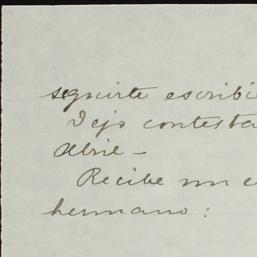 seguirte escribi
Dejo contesta
Abril —
Recibe un
hermano: